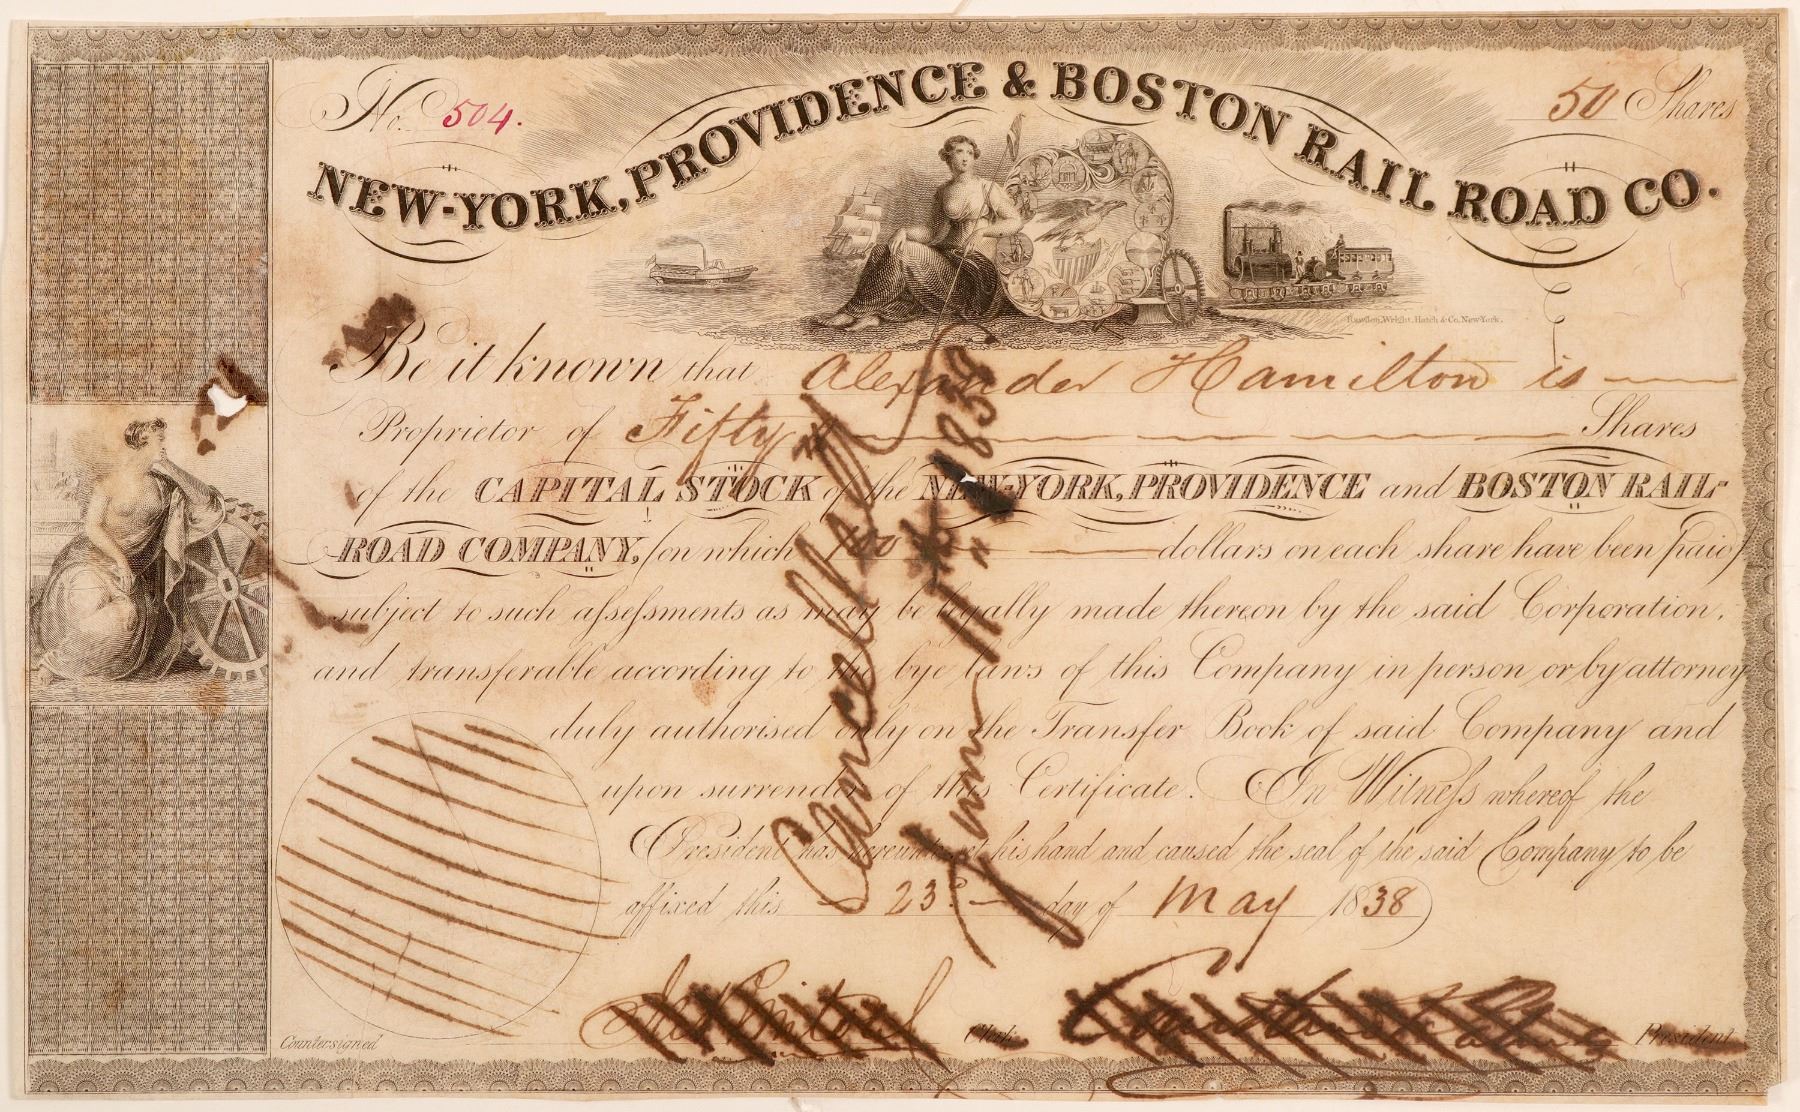 No. 504.
50 Shares
NEW-YORK, PROVIDENCE & BOSTON RAIL ROAD CO.
Rawdon, Wright, Hatch & Co. New-York.
Be it known that Alexander Hamilton is
Proprietor of Fifty Shares
of the CAPITAL STOCK of the NEW-YORK, PROVIDENCE and BOSTON RAIL-
ROAD COMPANY, (on which 100 dollars on each share have been paid)
subject to such assessments as may be legally made thereon by the said Corporation,
and transferable according to the bye laws of this Company in person or by attorney
duly authorised only on the Transfer Book of said Company and
upon surrender of this Certificate. In Witness whereof the
President has hereunto set his hand and caused the seal of the said Company to be
affixed this 23d day of May 1838
Cancelled
June 11th 1838
Countersigned
Clerk
President